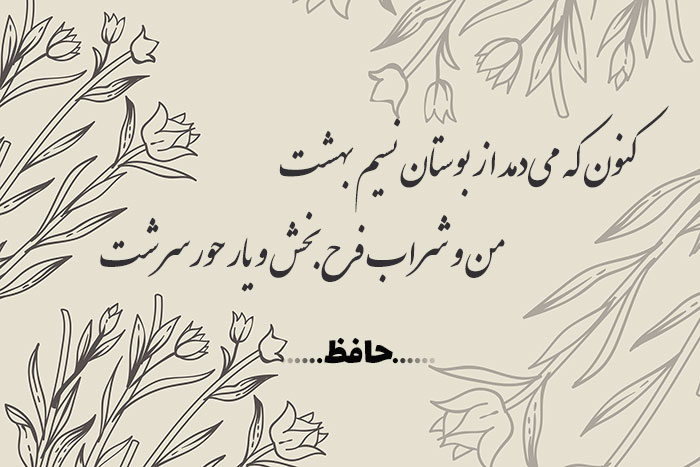 کنون که می‌دمد از بوستان نسیم بهشت
من و شراب فرح بخش و یار حور سرشت
......حافظ......